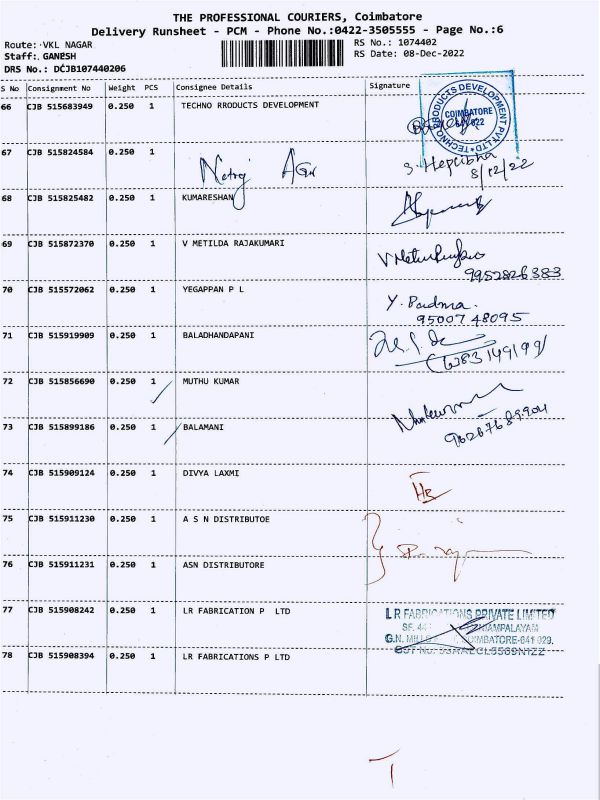 THE PROFESSIONAL COURIERS, Coimbatore
Delivery Runsheet - PCM - Phone No.:0422-3505555 - Page No.:6
Route: VKL NAGAR RS No.: 1074402
Staff: GANESH RS Date: 08-Dec-2022
DRS No.: DCJB107440206
S No Consignment No Weight PCS Consignee Details Signature
66 CJB 515683949 0.250 1 TECHNO RRODUCTS DEVELOPMENT
COIMBATORE
67 CJB 515824584 0.250 1
S. Hepzibha
8/12/22
68 CJB 515825482 0.250 1 KUMARESHAN
69 CJB 515872370 0.250 1 V METILDA RAJAKUMARI
9952826383
70 CJB 515572062 0.250 1 YEGAPPAN P L
Y. Padma.
95007 48095
71 CJB 515919909 0.250 1 BALADHANDAPANI
72 CJB 515856690 0.250 1 MUTHU KUMAR
73 CJB 515899186 0.250 1 BALAMANI
74 CJB 515909124 0.250 1 DIVYA LAXMI
75 CJB 515911230 0.250 1 A S N DISTRIBUTOE
76 CJB 515911231 0.250 1 ASN DISTRIBUTORE
77 CJB 515908242 0.250 1 LR FABRICATION P LTD
L R FABRICATIONS PRIVATE LIMITED
78 CJB 515908394 0.250 1 LR FABRICATIONS P LTD